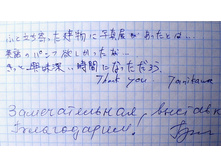 ふと立ち寄った建物に写真展があったとは…
英語のパンフ欲しかったな…
きっと興味深い時間になっただろう
Thank you Tanikawa
Замечательная выставка
Благодарим.